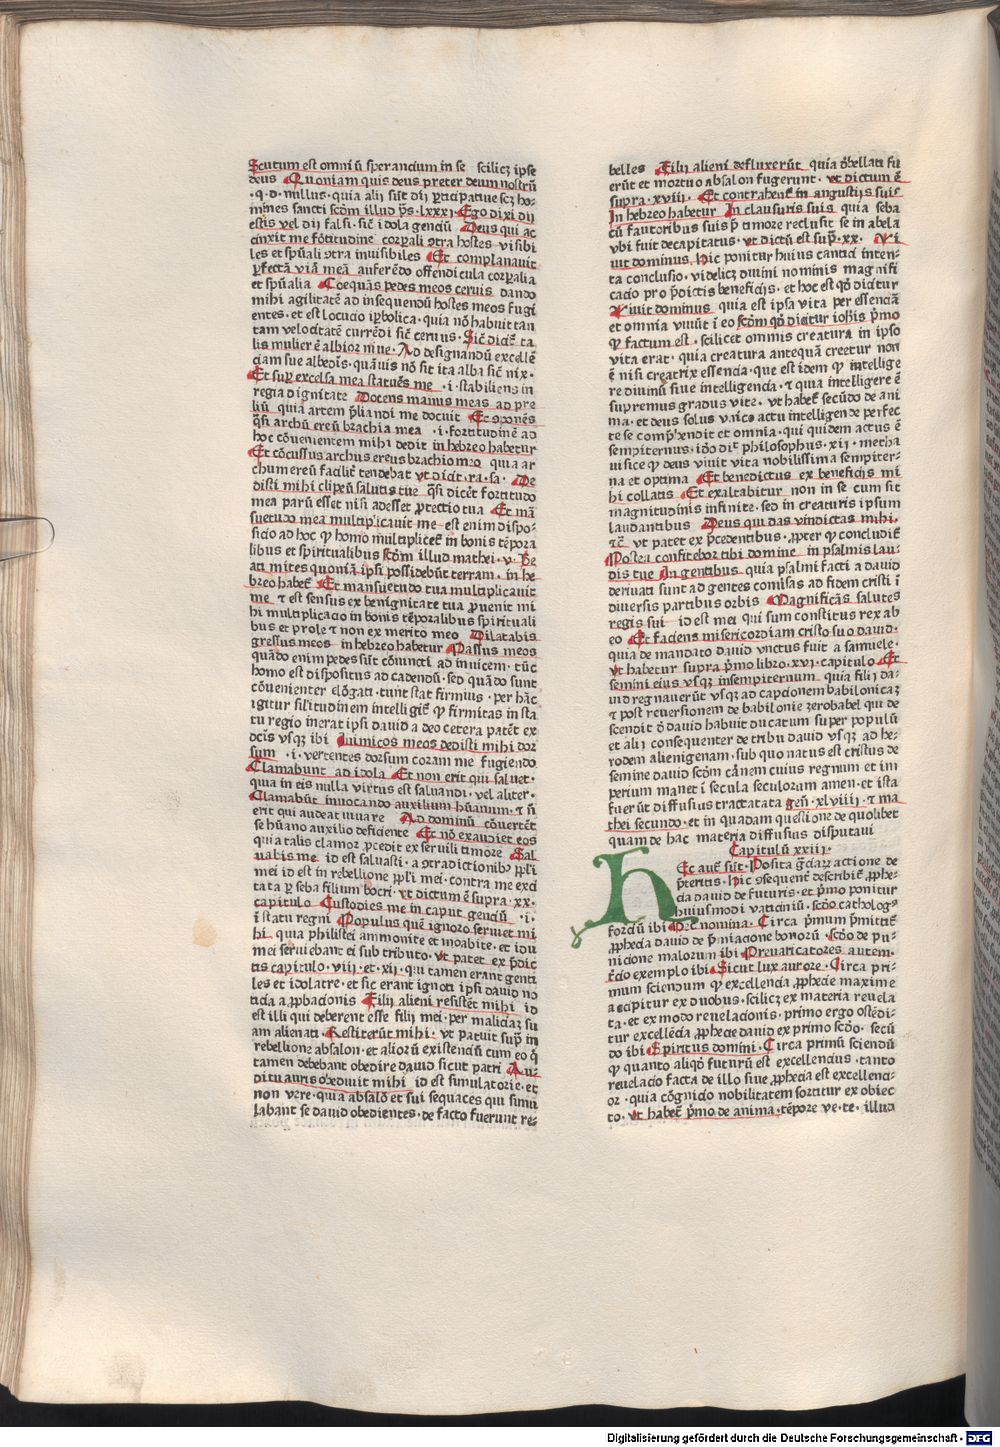 Scutum est omniū sperancium in se scilicꝫ ipse
deus Quoniam quis deus preter deum nostrū
·q·d·nullus·quia alij sūt dij ꝑticipatiue scꝫ ho⸗
mines sancti scd̄m illud p̄s·lxxxj·Ego dixi dij
estis vel dij falsi·sic̄ idola genciū Deus qui ac
cinxit me fōtitudine corꝑali ꝯtra hostes visibi
les et sp̄uali ꝯtra inuisibiles Et complanauit
ꝑfectā viā meā auferēdo offendicula corꝑalia
et sp̄ualia Coequās pedes meos ceruis dando
mihi agilitatē ad insequendū hostes meos fugi
entes·et est locucio iꝑbolica·quia nō habuit tan
tam velocitatē currēdi sic̄ ceruus·Sic̄ dicit̄ ta
lis mulier ē albior niue·Ad designandū excellē
ciam sue albedīs·quāuis nō sit ita alba sic̄ nix·
Et suꝑ excelsa mea statuēs me ·i·stabiliens in
regia dignitate Docens manus meas ad pre
liū quia artem p̄liandi me docuit Et ꝯponēs
q̄si archū ereū brachia mea ·i·fortitudinē ad
hoc cōuenientem mihi dedit in hebreo habetur
Et cōcussus archus ereus brachio meo quia ar
chum ereū facilit̄ tendebat vt dicit·ra·sa· De
disti mihi clipeū salutis tue q̄si dicēt fortitudo
mea parū esset nisi adesset ꝓtectio tua Et mā
suetudo mea multiplicauit me est enim dispo⸗
sicio ad hoc ꝙ homo multiplicet̄ in bonis tēpora
libus et spiritualibus scd̄m illud mathei·v·Be
ati mites quoniā ipsi possidebūt terram·in he
breo habet̄ Et mansuetudo tua multiplicauit
me ⁊ est sensus ex benignitate tua ꝓuenit mi
hi multiplicacio in bonis tēporalibus spirituali
bus et prole ⁊ non ex merito meo Dilatabis
gressus meos in hebreo habetur Passus meos
quādo enim pedes sūt cōiuncti ad inuicem·tūc
homo est dispositus ad cadendū·sed quādo sunt
cōuenienter elōgati·tunc stat firmius·per hāc
igitur similitudinem intelligit̄ ꝙ firmitas in sta
tu regio inerat ipsi dauid a deo cetera patēt ex
dictis vsqꝫ ibi Inimicos meos dedisti mihi dor
sum ·i·vertentes dorsum coram me fugiendo
Clamabunt ad idola Et non erit qui saluet·
quia in eis nulla virtus est saluandi·vel aliter·
Clamabūt inuocando auxilium hūanum·⁊ n̄
erit qui audeat iuuare Ad dominū cōuertēt
se hūano auxilio deficiente Et nō exaudiet eos
quia talis clamor ꝓcedit ex seruili timore Sal
uabis me id est saluasti·a ꝯtradictionibꝰ ꝓpli
mei id est in rebellione ꝓpli mei·contra me exci
tata ꝑ seba filium bocri·vt dictum ē supra·xx·
capitulo Custodies me in caput genciū ·i·
ī statu regni Populus quē ignoro seruiet mi
hi· quia philistei ammonite et moabite·et idu
mei seruiebant ei sub tributo·vt patet ex p̄dic
tis capitulo·viij·et·xij·qui tamen erant genti
les et idolatre·et sic erant ignoti ipsi dauid no
ticia aꝓpbacionis Filij alieni resistēt mihi id
est illi qui deberent esse filij mei·per maliciaꝫ su
am alienati·Restiterūt mihi· vt patuit suꝑ in
rebellione absalon·et aliorū existenciū cum eo q̄
tamen debebant obedire dauid sicut patri Au⸗
ditu auris obediuit mihi id est simulatorie·et
non vere·quia absalō et sui sequaces qui simu
labant se dauid obedientes·de facto fuerunt re⸗
belles Filij alieni defluxerūt quia debellati fu
erūt et mortuo absalon fugerunt· vt dictum ē
supra·xviij· Et contrahent̄ in angustijs suis
In hebreo habetur In clausuris suis quia seba
cū fautoribus suis p̄ timore reclusit se in abela
vbi fuit decapitatus·vt dictū est suꝑ·xx· Vi
uit dominus hic ponitur huius cantici inten⸗
ta conclusio·videlicꝫ diuini nominis magnifi
cacio pro p̄dictis beneficijs·et hoc est qd̄ dicitur
Viuit dominus quia est ipsa vita per essenciā
et omnia viuūt ī eo scd̄m qd̄ dicitur iohīs p̄mo
Quod factum est·scilicet omnis creatura in ipso
vita erat·quia creatura antequā creetur non
ē nisi creatrix essencia·que est idem ꝙ intellige
re diuinū siue intelligencia·⁊ quia intelligere ē
supremus gradus vite·vt habet̄ secūdo de ani
ma·et deus solus vnico actu intelligendi perfec
te se comp̄hendit et omnia·qui quidem actus ē
sempiternus·idō dic̄ philosophus·xij·metha
uisice ꝙ deus viuit vita nobilissima sempiter⸗
na et optima Et benedictus ex beneficijs mi
hi collatis Et exaltabitur non in se cum sit
magnitudinis infinite·sed in creaturis ipsum
laudantibus Deus qui das vindictas mihi·
⁊c̄ vt patet ex p̄cedentibus·ꝓpter ꝙ concludit̄
Postea confitebor tibi domine in psalmis lau⸗
dis tue In gentibus quia psalmi facti a dauid
deriuati sunt ad gentes conu̇sas ad fidem cristi ī
diuersis partibus orbis Magnificās salutes
regis sui id est mei qui sum constitus rex ab
eo Et faciens misericordiam cristo suo dauid·
quia de mandato dauid vnctus fuit a samuele·
vt habetur supra p̄mo libro·xvj·capitulo Et
semini eius vsqꝫ insempiternum quia filij da⸗
uid regnauerūt vsqꝫ ad capcionem babilonicaꝫ
⁊ post reuersionem de babilonie zerobabel qui de
scendit d̄ dauid habuit ducatum super populū
et alij consequenter de tribu dauid vsqꝫ ad he⸗
rodem alienigenam·sub quo natus est cristus de
semine dauid scd̄m cānem cuius regnum et im
perium manet ī secula seculorum amen·et ista
fuerūt diffusius tractatata gen̄·xlviiij·⁊ ma
thei secundo·et in quadam questione de quolibet
quam de hac materia diffusius disputaui
Capitulū xxiij·
HEc aut̄ sūt·Posita gr̄aꝝ actione de
p̄teritis·hic ꝯsequent̄ describit̄ ꝓphe⸗
cia dauid de futuris·et p̄mo ponitur
huiusmodi vaticiniū·scd̄o cathologꝰ
forciū ibi Hec nomina·Circa p̄mum p̄mittit̄
ꝓphecia dauid de p̄miacione bonorū·scd̄o de pu⸗
nicione malorum ibi Preuaricatores autem·
tercio exemplo ibi Sicut lux aurore·Circa pri⸗
mum sciendum ꝙ excellencia ꝓphecie maxime
accipitur ex duobus·scilicꝫ ex materia reuela
ta·et ex modo reuelacionis·primo ergo ostēdi⸗
tur excellēcia ꝓphecie dauid ex primo scd̄o·secū
do ibi Spiritus domini·Circa primū sciendū
ꝙ quanto aliqd̄ futurū est excellencius·tanto
reuelacio facta de illo siue ꝓphecia est excellenci⸗
or·quia cōgnicio nobilitatem sortitur ex obiec
to·vt habet̄ p̄mo de anima·tēpore ve·te·illud
Digitalisierung gefördert durch die Deutsche Forschungsgemeinschaft - DFG